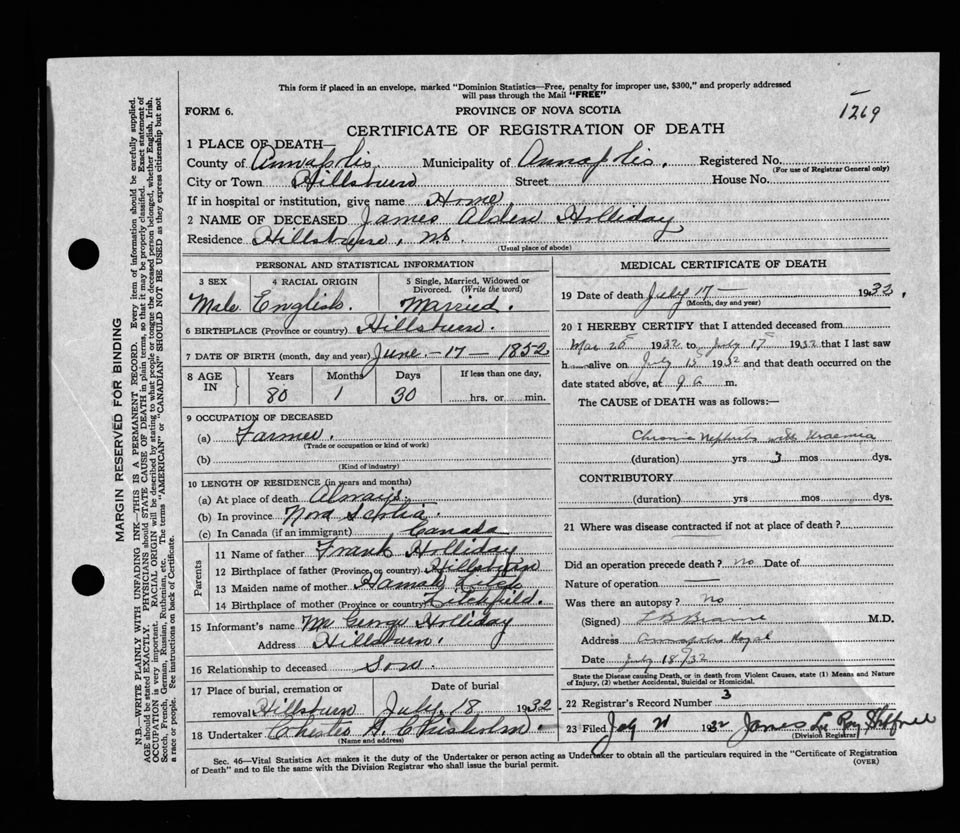 This form if placed in an envelope, marked "Dominion Statistics—Free, penalty for improper use, $300," and properly addressed
will pass through the Mail "FREE"
FORM 6.
PROVINCE OF NOVA SCOTIA
1269
CERTIFICATE OF REGISTRATION OF DEATH
1 PLACE OF DEATH—
County of Annapolis. Municipality of Annapolis. Registered No.
(For use of Registrar General only)
City or Town Hillsburn Street House No.
If in hospital or institution, give name Home
2 NAME OF DECEASED James Alden Holliday
Residence Hillsburn, N.S.
(Usual place of abode)
PERSONAL AND STATISTICAL INFORMATION
3 SEX 4 RACIAL ORIGIN 5 Single, Married, Widowed or
Divorced. (Write the word)
Male English. Married.
6 BIRTHPLACE (Province or country) Hillsburn.
7 DATE OF BIRTH (month, day and year) June - 17 - 1852
8 AGE IN Years Months Days If less than one day,
80 1 30 hrs. or min.
9 OCCUPATION OF DECEASED
(a) Farmer.
(Trade or occupation or kind of work)
(b)
(Kind of industry)
10 LENGTH OF RESIDENCE (in years and months)
(a) At place of death Always.
(b) In province Nova Scotia.
(c) In Canada (if an immigrant) Canada
Parents
11 Name of father Frank Holliday
12 Birthplace of father (Province or country) Hillsburn
13 Maiden name of mother Hannah
14 Birthplace of mother (Province or country) Litchfield.
15 Informant's name Mr George Holliday
Address Hillsburn.
16 Relationship to deceased Son.
17 Place of burial, cremation or Date of burial
removal Hillsburn July 18 1932
18 Undertaker Chisholm
(Name and address)
MEDICAL CERTIFICATE OF DEATH
19 Date of death July 17 — 1932.
(Month, day and year)
20 I HEREBY CERTIFY that I attended deceased from
Mar 25 1932 to July 15 1932 that I last saw
h alive on July 15 1932 and that death occurred on the
date stated above, at 9 a m.
The CAUSE of DEATH was as follows:—
Chronic Nephritis with Uraemia
(duration) yrs 3 mos dys.
CONTRIBUTORY
(duration) yrs mos dys.
21 Where was disease contracted if not at place of death?
Did an operation precede death? No Date of
Nature of operation —
Was there an autopsy? No
(Signed) M.D.
Address Annapolis Royal
Date July 18/32
State the Disease causing Death, or in death from Violent Causes, state (1) Means and
Nature of Injury, (2) whether Accidental, Suicidal or Homicidal.
22 Registrar's Record Number 3
23 Filed July 21 1932 James
(Division Registrar)
Sec. 46—Vital Statistics Act makes it the duty of the Undertaker or person acting as Undertaker to obtain all the particulars required in the "Certificate of Registration
of Death" and to file the same with the Division Registrar who shall issue the burial permit.
(OVER)
MARGIN RESERVED FOR BINDING
N.B.—WRITE PLAINLY WITH UNFADING INK—THIS IS A PERMANENT RECORD. Every item of information should be carefully supplied.
AGE should be stated EXACTLY. PHYSICIANS should STATE CAUSE OF DEATH in plain terms, so that it may be properly classified. Exact statement of
OCCUPATION is very important. RACIAL ORIGIN will be described by stating to what people or tongue the deceased person belonged, whether English, Irish,
Scotch, French, German, Russian, Ruthenian, etc. The terms "AMERICAN" or "CANADIAN" SHOULD NOT BE USED as they express citizenship but not
a race or people. See instructions on back of Certificate.